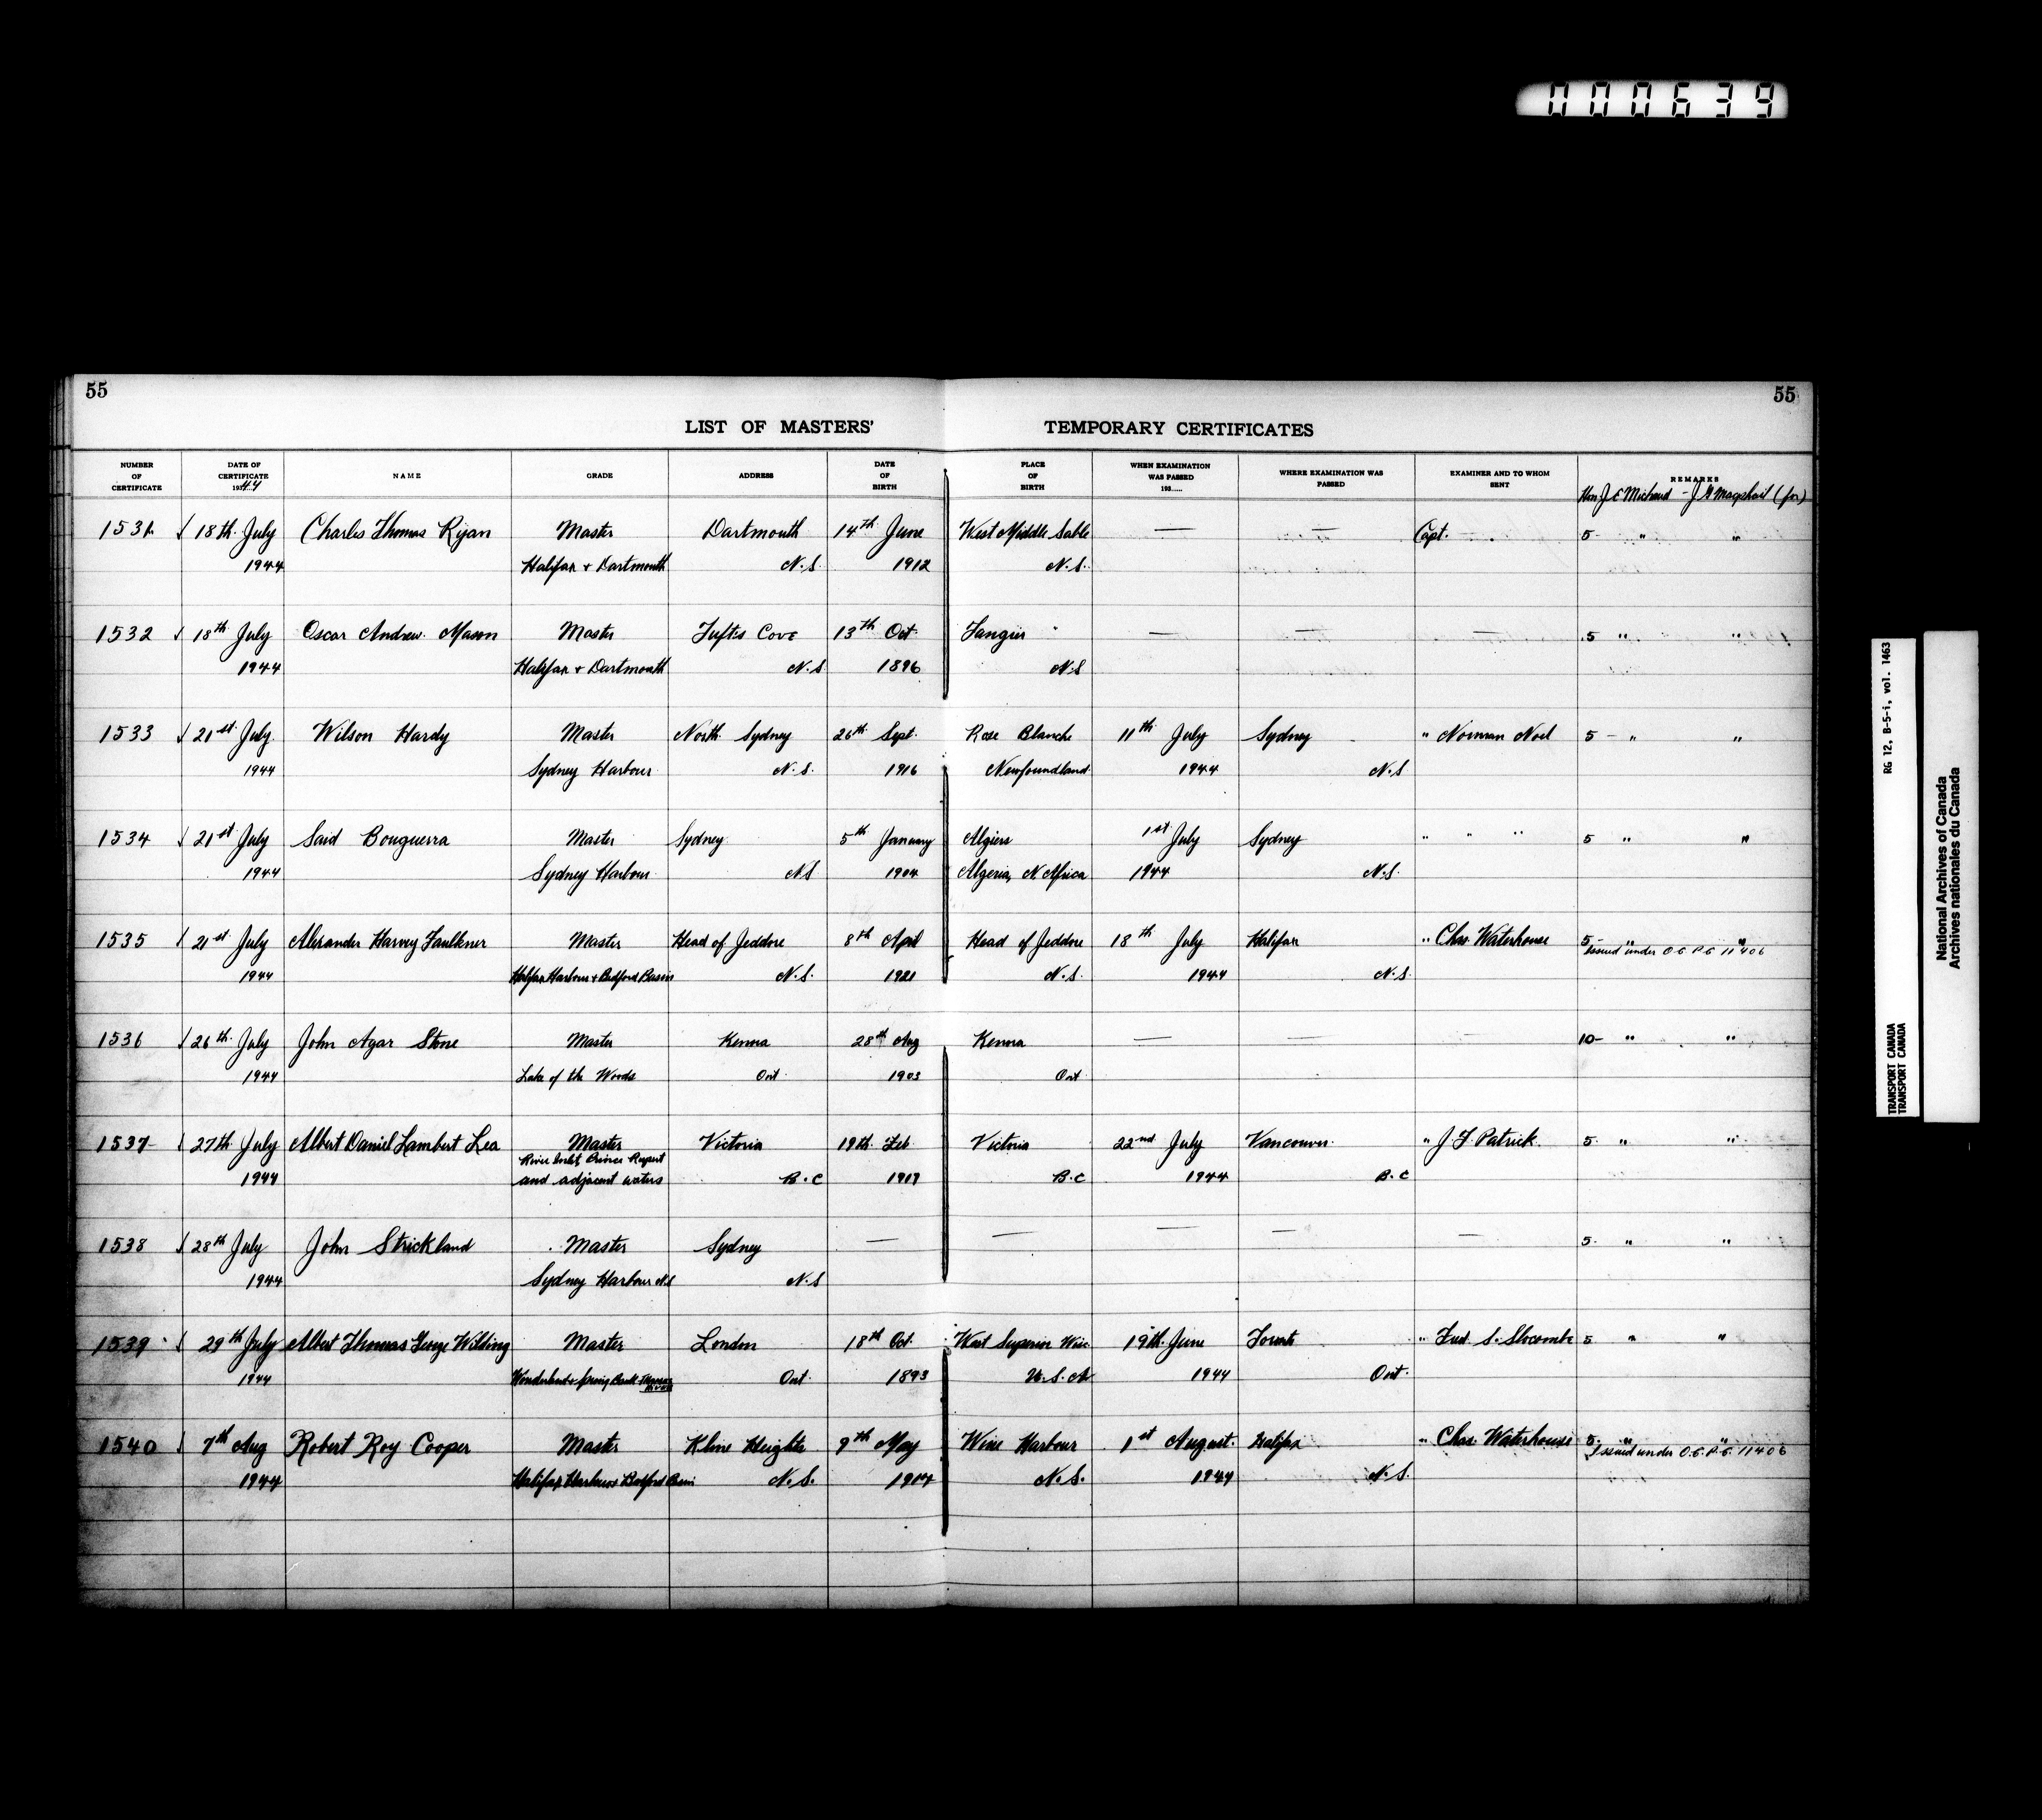 000639
55
55
LIST OF MASTERS' TEMPORARY CERTIFICATES
NUMBER OF CERTIFICATE
DATE OF CERTIFICATE 193 44
NAME
GRADE
ADDRESS
DATE OF BIRTH
PLACE OF BIRTH
WHEN EXAMINATION WAS PASSED 193.....
WHERE EXAMINATION WAS PASSED
EXAMINER AND TO WHOM SENT
REMARKS
Hon J E Michaud - J (for)
1531 18th July Charles Thomas Ryan Master Dartmouth 14th June West Middle Sable — — Capt. 5- " "
1944 Halifax + Dartmouth N.S. 1912 N.S.
1532 18th July Oscar Andrew Mason Master Tufts Cove 13th Oct. Tangier — — — 5 " "
1944 Halifax + Dartmouth N.S 1896 N.S
1533 21st July Wilson Hardy Master North Sydney 26th Sept. Rose Blanche 11th July Sydney " Norman Noel 5 - " "
1944 Sydney Harbour N.S. 1916 Newfoundland 1944 N.S
1534 21st July Said Bouguerra Master Sydney 5th January Algiers 1st July Sydney " " " 5 " "
1944 Sydney Harbour N.S 1904 Algeria, N. Africa 1944 N.S.
1535 21st July Alexander Harvey Faulkner Master Head of Jeddore 8th April Head of Jeddore 18th July Halifax " Chas. Waterhouse 5- " "
Issued under O.C. P.C. 11406
1944 Halifax Harbour + Bedford Basin N.S. 1921 N.S. 1944 N.S.
1536 26th July John Agar Stone Master Kenora 28th Aug Kenora — — — 10- " "
1944 Lake of the Woods Ont. 1903 Ont.
1537 27th July Albert Daniel Lambert Lea Master Victoria 19th Feb Victoria 22nd July Vancouver " J. F. Patrick. 5. " "
River Inlet, Prince Rupert
1944 and adjacent waters B.C 1919 B.C 1944 B.C
1538 28th July John Strickland Master Sydney — — — — — 5. " "
1944 Sydney Harbour N.S N.S
1539 29th July Albert Thomas George Wilding Master London 18th Oct. West Superior Wisc. 19th June Toronto " Fred. S. Slocombe 5 " "
1944 Ont. 1893 U.S.A 1944 Ont.
1540 7th Aug Robert Roy Cooper Master Kline Heights 9th May Wine Harbour 1st August. Halifax " Chas. Waterhouse 5. " "
Issued under O.C. P.C. 11406
1944 Halifax Harbour + Bedford Basin N.S. 1904 N.S. 1944 N.S.
RG 12, B-5-i, vol. 1463
TRANSPORT CANADA
TRANSPORT CANADA
National Archives of Canada
Archives nationales du Canada